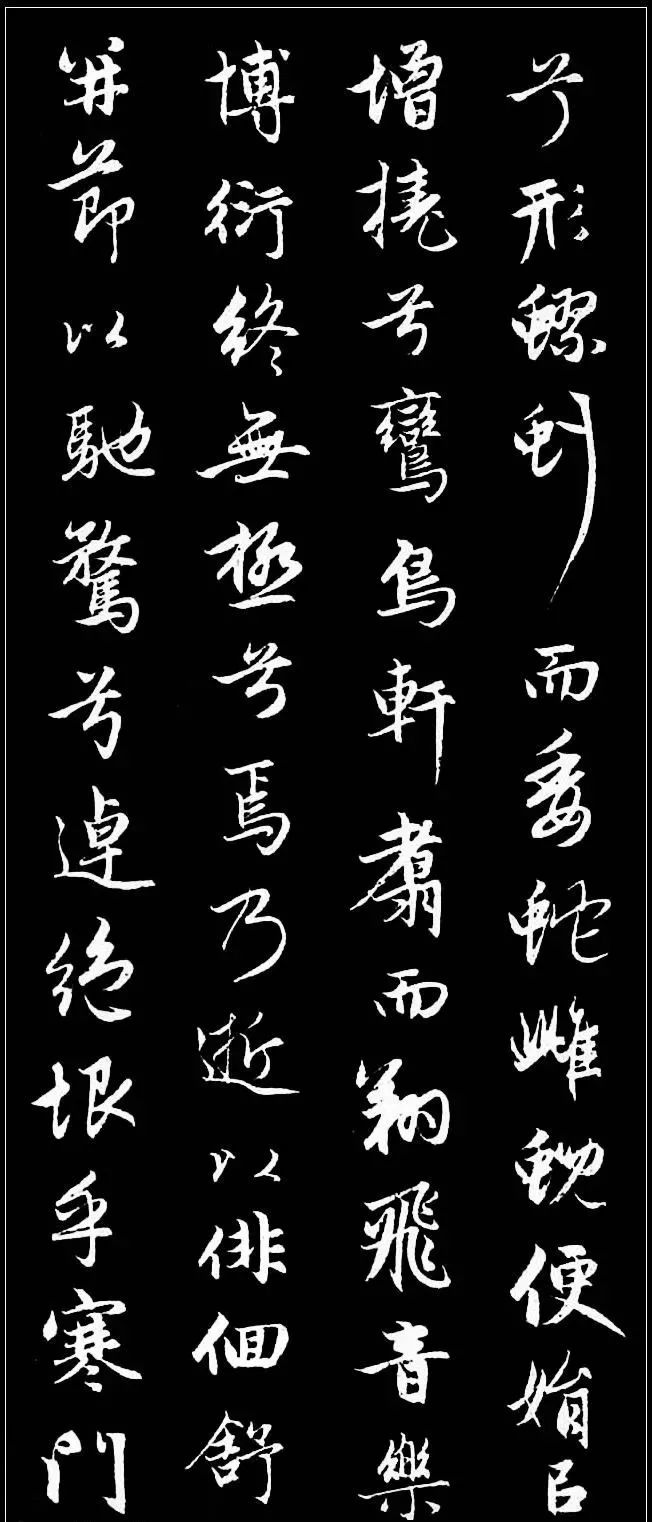 兮形蟉虬而委蛇雌蜺便娟㠯
增撓兮鸞鳥軒翥而翔飛音樂
博衍終無極兮焉乃逝以俳佪舒
并節以馳騖兮逴絕垠乎寒門